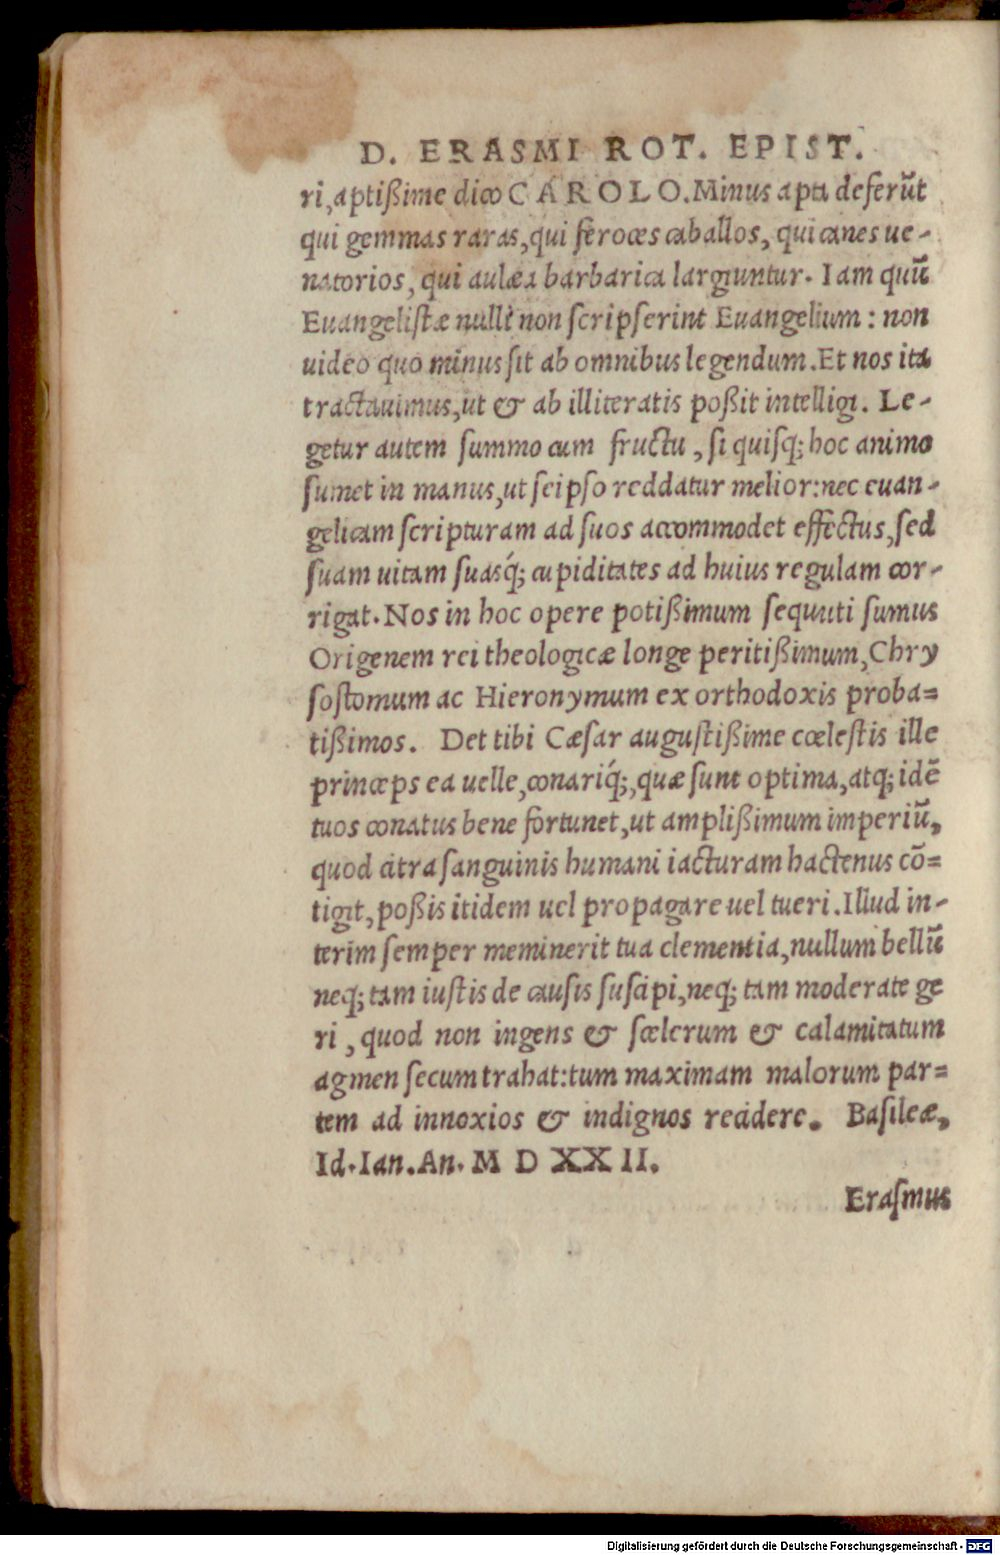 D. ERASMI ROT. EPIST.
ri, aptißime dico CAROLO. Minus apta deferūt
qui gemmas raras, qui feroces caballos, qui canes ue-
natorios, qui aulæa barbarica largiuntur. Iam quū
Euangelistæ nulli non scripserint Euangelium: non
uideo quo minus sit ab omnibus legendum. Et nos ita
tractauimus, ut & ab illiteratis poßit intelligi. Le-
getur autem summo cum fructu, si quisq; hoc animo
sumet in manus, ut seipso reddatur melior: nec euan-
gelicam scripturam ad suos accommodet effectus, sed
suam uitam suasq́; cupiditates ad huius regulam cor-
rigat. Nos in hoc opere potißimum sequuti sumus
Origenem rei theologicæ longe peritißimum, Chry
sostomum ac Hieronymum ex orthodoxis proba=
tißimos. Det tibi Cæsar augustißime cœlestis ille
princeps ea uelle, conariq́;, quæ sunt optima, atq; idē
tuos conatus bene fortunet, ut amplißimum imperiū,
quod citra sanguinis humani iacturam hactenus cō=
tigit, poßis itidem uel propagare uel tueri. Illud in-
terim semper meminerit tua clementia, nullum bellū
neq; tam iustis de causis suscipi, neq; tam moderate ge
ri, quod non ingens & scelerum & calamitatum
agmen secum trahat: tum maximam malorum par=
tem ad innoxios & indignos recidere. Basileæ,
Id. Ian. An. M D XXII.
Erasmus
Digitalisierung gefördert durch die Deutsche Forschungsgemeinschaft - DFG